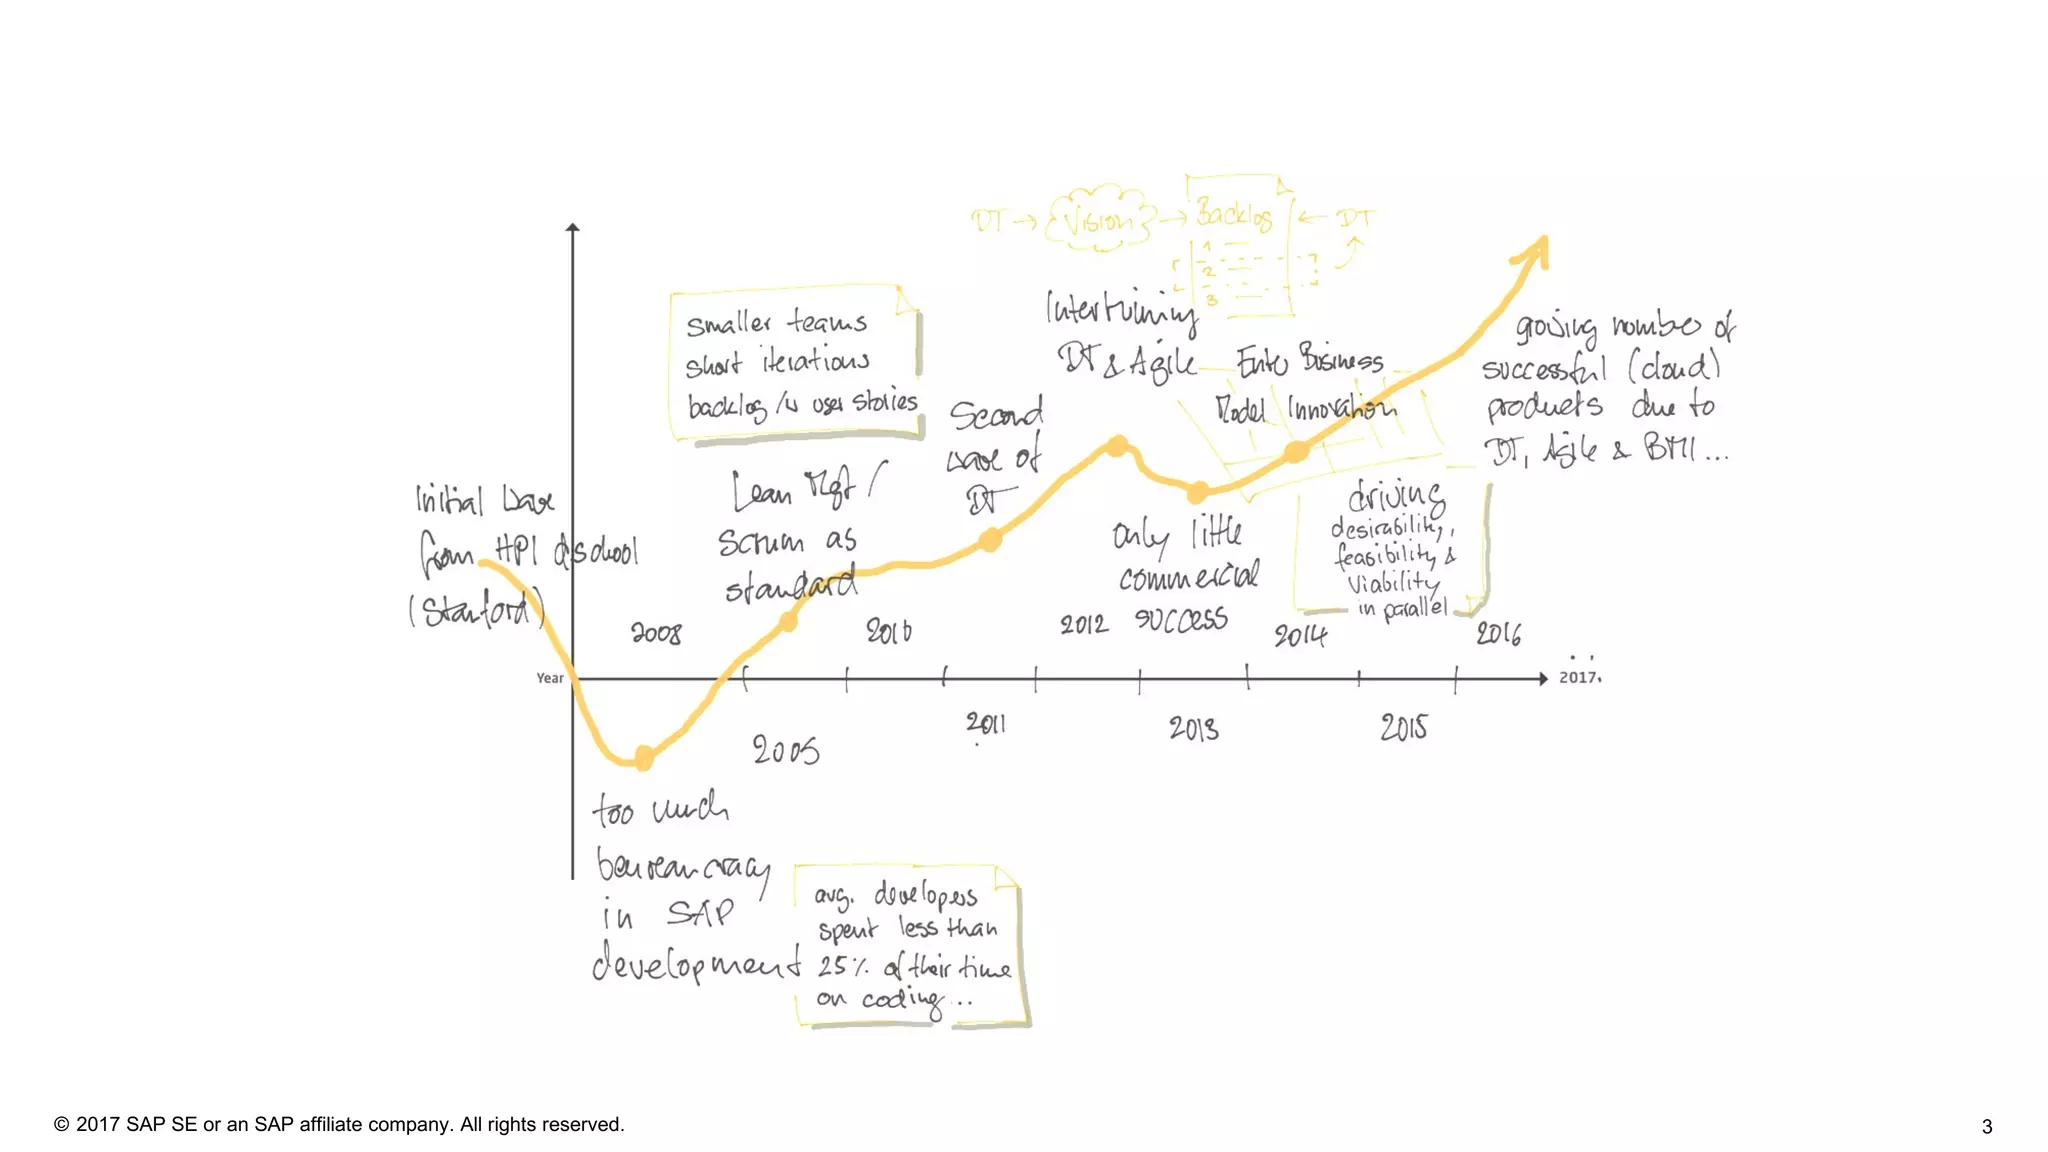 DT → Vision → Backlog ← DT
1
2
3
smaller teams
short iterations
backlog /w user stories
Intertwining
DT & Agile
Enter Business
Model Innovation
growing number of
successful (cloud)
products due to
DT, Agile & BMI ...
Second
wave of
DT
Lean Mgt /
Scrum as
standard
Initial wave
from HPI d.school
(Stanford)
only little
commercial
success
driving
desirability,
feasibility &
viability
in parallel
2008
2010
2012
2014
2016
Year
2017
2009
2011
2013
2015
too much
beureaucracy
in SAP
development
avg. developers
spent less than
25% of their time
on coding ...
© 2017 SAP SE or an SAP affiliate company. All rights reserved.
3